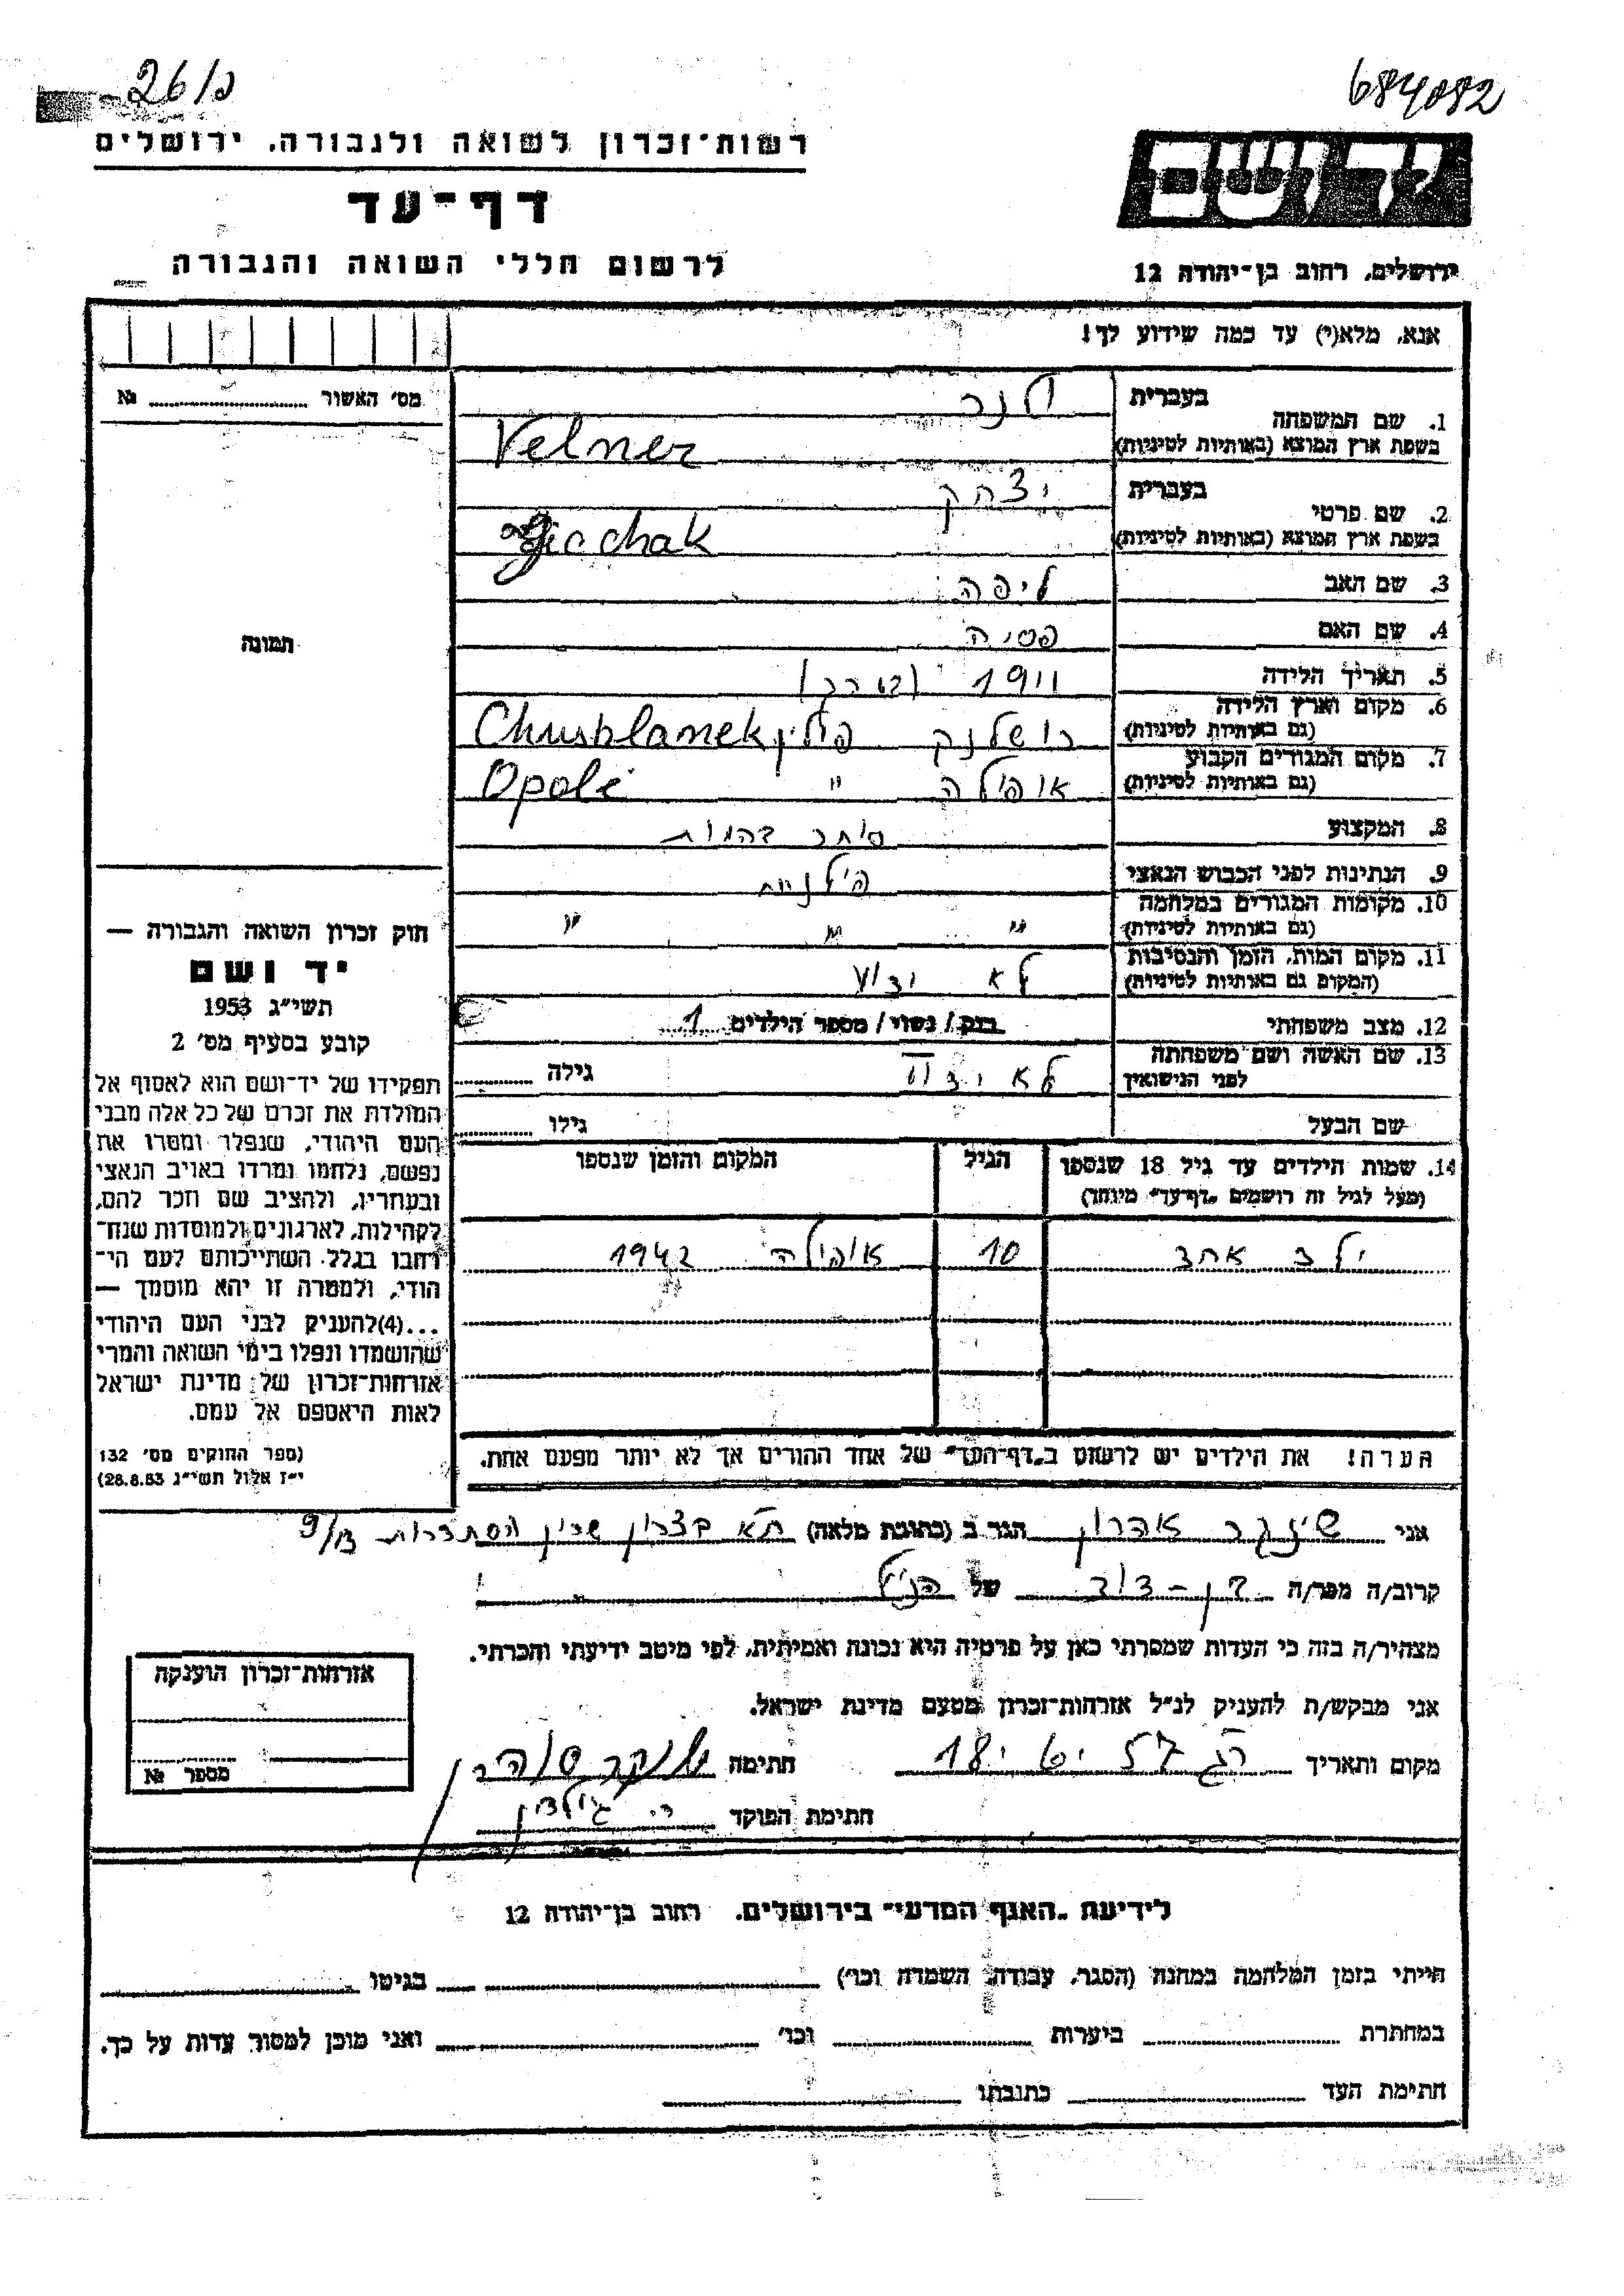 26/כ
684082
רשות־זכרון לשואה ולגבורה, ירושלים
דף־עד
לרשום חללי השואה והגבורה
יד ושם
ירושלים, רחוב בן־יהודה 12
אנא, מלא(י) עד כמה שידוע לך!
מס' האשור № 
תמונה
1. שם המשפחה בעברית ולנר
בשפת ארץ המוצא (באותיות לטיניות) Velner
2. שם פרטי בעברית יצחק
בשפת ארץ המוצא (באותיות לטיניות)
3. שם האב ליפה
4. שם האם פסיה
5. תאריך הלידה 1911
6. מקום וארץ הלידה
(גם באותיות לטיניות) פולין
7. מקום המגורים הקבוע
(גם באותיות לטיניות) אופולה " Opole
8. המקצוע סוחר בהמות
9. הנתינות לפני הכבוש הנאצי פולנית
10. מקומות המגורים במלחמה
(גם באותיות לטיניות) " " "
11. מקום המות, הזמן והנסיבות
(המקום גם באותיות לטיניות) לא ידוע
12. מצב משפחתי רווק / נשוי / מספר הילדים 1
13. שם האשה ושם משפחתה
לפני הנישואין לא גילה
שם הבעל גילו
14. שמות הילדים עד גיל 18 שנספו הגיל המקום והזמן שנספו
(מעל לגיל זה רושמים "דף־עד" מיוחד)
ילד אחד 10 אופולה 1942
הערה! את הילדים יש לרשום ב"דף־העד" של אחד ההורים אך לא יותר מפעם אחת.
חוק זכרון השואה והגבורה —
יד ושם
תשי"ג 1953
קובע בסעיף מס' 2
תפקידו של יד־ושם הוא לאסוף אל
המולדת את זכרם של כל אלה מבני
העם היהודי, שנפלו ומסרו את
נפשם, נלחמו ומרדו באויב הנאצי
ובעוזריו, ולהציב שם וזכר להם,
לקהילות, לארגונים ולמוסדות שנח־
רחבו בגלל השתייכותם לעם הי־
הודי, ולמטרה זו יהא מוסמך —
...(4)להעניק לבני העם היהודי
שהושמדו ונפלו בימי השואה והמרי
אזרחות־זכרון של מדינת ישראל
לאות היאספם אל עמם.
(ספר החוקים מס' 132
י"ז אלול תשי"ג 28.8.53)
אני אהרון הגר ב (כתובת מלאה) ת"א בצרון שכון הסתדרות 9/13
קרוב/ה מפר/ה בן-דוד של הנ"ל
מצהיר/ה בזה כי העדות שמסרתי כאן על פרטיה היא נכונה ואמיתית, לפי מיטב ידיעתי והכרתי.
אני מבקש/ת להעניק לנ"ל אזרחות־זכרון מטעם מדינת ישראל.
מקום ותאריך חתימה
חתימת הפוקד
אזרחות־זכרון הוענקה
מספר №
לידיעת "האגף המדעי" בירושלים, רחוב בן־יהודה 12
הייתי בזמן המלחמה במחנה (הסגר, עבודה, השמדה וכו') בגיטו
במחתרת ביערות וכו' ואני מוכן למסור עדות על כך.
חתימת העד כתובתו